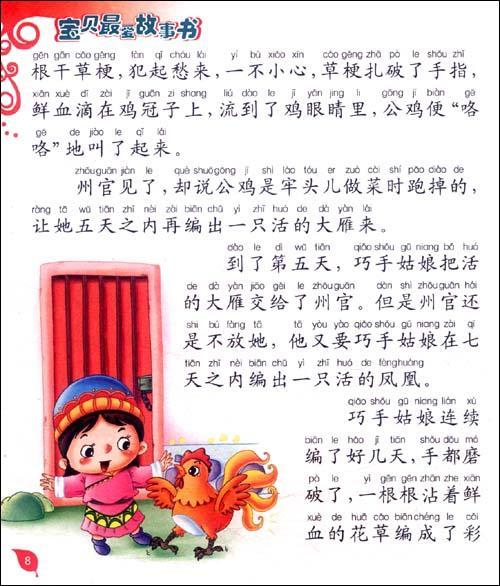 宝贝最爱故事书
gēn gān cǎo gěng fàn qǐ chóu lái yí bù xiǎo xīn cǎo gěng zhā pò le shǒu zhǐ
根干草梗,犯起愁来,一不小心,草梗扎破了手指,
xiān xuè dī zài jī guān zi shang liú dào le jī yǎn jing li gōng jī biàn gē
鲜血滴在鸡冠子上,流到了鸡眼睛里,公鸡便“咯
gē de jiào le qǐ lái
咯”地叫了起来。
zhōu guān jiàn le què shuō gōng jī shì láo tóu er zuò cài shí pǎo diào de
州官见了,却说公鸡是牢头儿做菜时跑掉的,
ràng tā wǔ tiān zhī nèi zài biān chū yì zhī huó de dà yàn lái
让她五天之内再编出一只活的大雁来。
dào le dì wǔ tiān qiǎo shǒu gū niang bǎ huó
到了第五天,巧手姑娘把活
de dà yàn jiāo gěi le zhōu guān dàn shì zhōu guān hái
的大雁交给了州官。但是州官还
shì bú fàng tā tā yòu yào qiǎo shǒu gū niang zài qī
是不放她,他又要巧手姑娘在七
tiān zhī nèi biān chū yì zhī huó de fèng huáng
天之内编出一只活的凤凰。
qiǎo shǒu gū niang lián xù
巧手姑娘连续
biān le hǎo jǐ tiān shǒu dōu mó
编了好几天,手都磨
pò le yì gēn gēn zhān zhe xiān
破了,一根根沾着鲜
xuè de huā cǎo biān chéng le cǎi
血的花草编成了彩
8